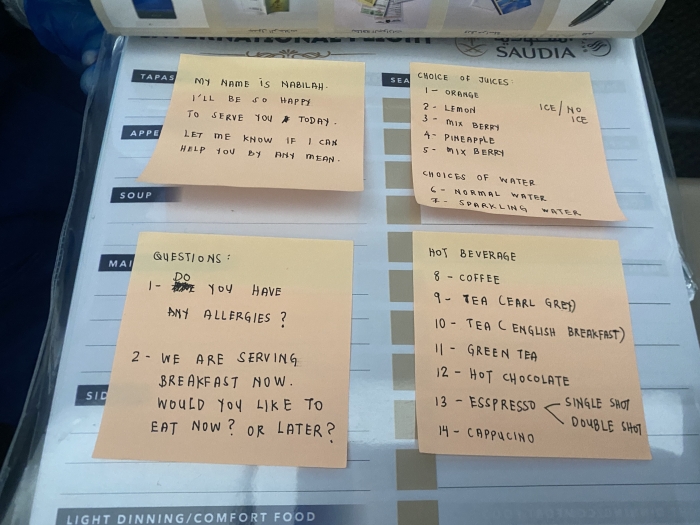 INTERNATIONAL FLIGHT
السعودية
SAUDIA
TAPAS
MY NAME IS NABILAH.
I'LL BE SO HAPPY
TO SERVE YOU TODAY.
LET ME KNOW IF I CAN
HELP YOU BY ANY MEAN.
APPE
SOUP
MAI
SID
LIGHT DINNING/COMFORT FOOD
SEA
CHOICE OF JUICES:
1 - ORANGE
2 - LEMON ICE/NO ICE
3 - MIX BERRY
4 - PINEAPPLE
5 - MIX BERRY
CHOICES OF WATER
6 - NORMAL WATER
7 - SPARKLING WATER
QUESTIONS:
1- DO YOU HAVE
ANY ALLERGIES?
2 - WE ARE SERVING
BREAKFAST NOW.
WOULD YOU LIKE TO
EAT NOW? OR LATER?
HOT BEVERAGE
8 - COFFEE
9 - TEA (EARL GREY)
10 - TEA (ENGLISH BREAKFAST)
11 - GREEN TEA
12 - HOT CHOCOLATE
13 - ESSPRESSO < SINGLE SHOT
DOUBLE SHOT
14 - CAPPUCINO